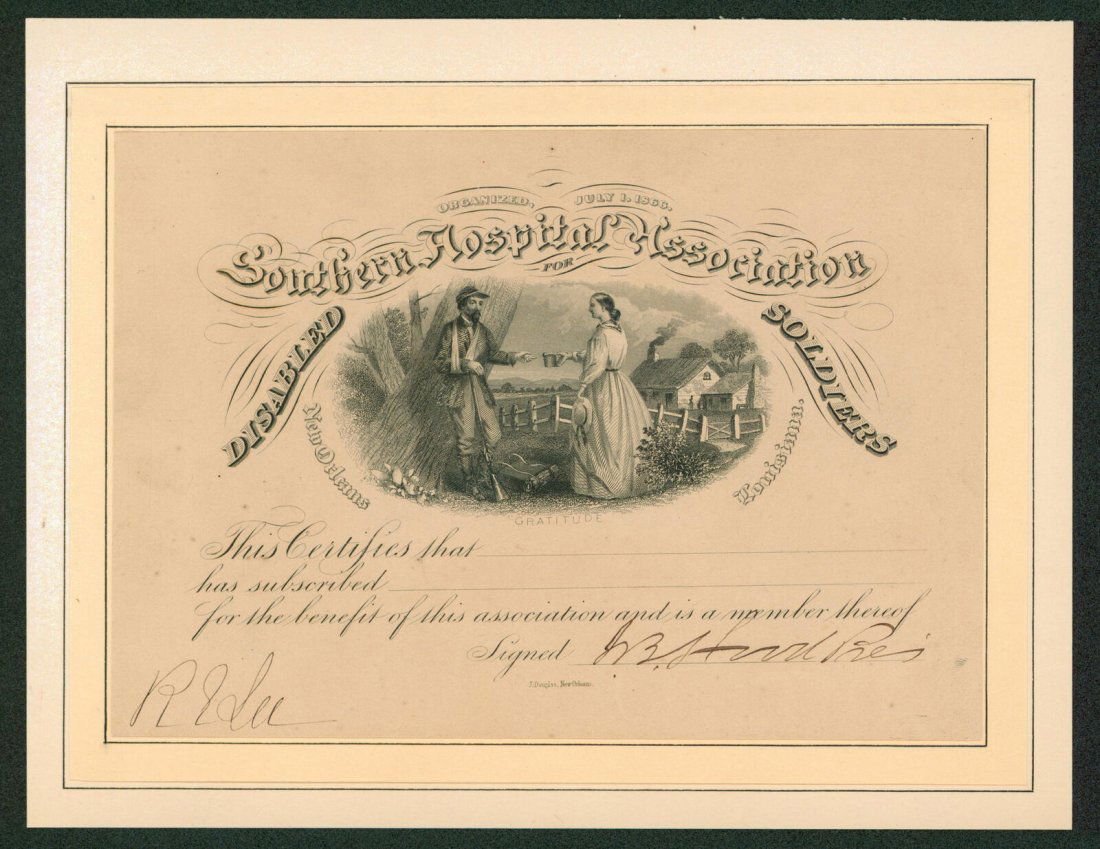 ORGANIZED, JULY 1, 1866.
Southern Hospital Association
FOR
DISABLED SOLDIERS
New Orleans Louisiana.
GRATITUDE
This Certifies that
has subscribed
for the benefit of this association and is a member thereof
Signed J B Hood Pres
J. Douglas, New Orleans.
R E Lee